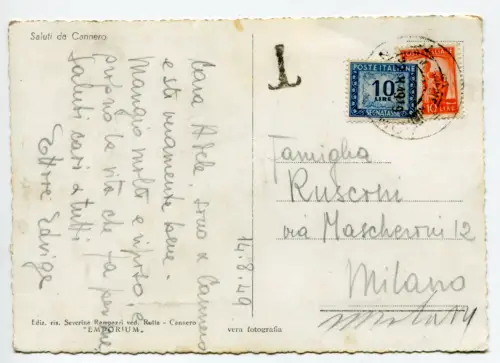 Saluti da Cannero
Cara Adele, sono a Cannero
e sto veramente bene.
Mangio molto e riposo, è
proprio la vita che fa per me
Saluti cari a tutti
Ettore Edvige
14.8.49
T
POSTE ITALIANE
10
LIRE
SEGNATASSE
Famiglia
Rusconi
via Mascheroni 12
Milano
Ediz. ris. Severina Ramazzi ved. Rolla - Cannero
"EMPORIUM"
vera fotografia